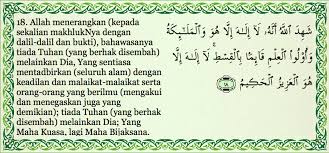 18. Allah menerangkan (kepada
sekalian makhlukNya dengan
dalil-dalil dan bukti), bahawasanya
tiada Tuhan (yang berhak disembah)
melainkan Dia, Yang sentiasa
mentadbirkan (seluruh alam) dengan
keadilan dan malaikat-malaikat serta
orang-orang yang berilmu (mengakui
dan menegaskan juga yang
demikian); tiada Tuhan (yang berhak
disembah) melainkan Dia; Yang
Maha Kuasa, lagi Maha Bijaksana.
شَهِدَ اللَّهُ أَنَّهُ لَا إِلَٰهَ إِلَّا هُوَ وَالْمَلَٰئِكَةُ
وَأُولُوا الْعِلْمِ قَائِمًا بِالْقِسْطِ ۚ لَا إِلَٰهَ إِلَّا
هُوَ الْعَزِيزُ الْحَكِيمُ ١٨